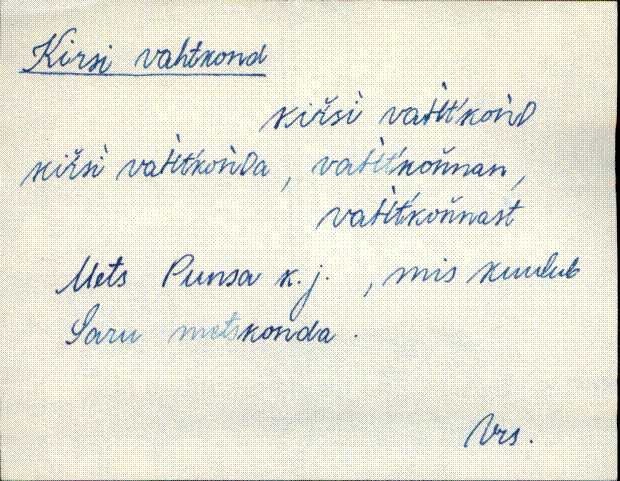 Kirsi vahtkond
kiŕsi vaht́końD
kiŕsi vaht́końDa, vaht́końnan,
vaht́końnast
Mets Punsa k.j., mis kuulub
Saru metskonda.
Vrs.